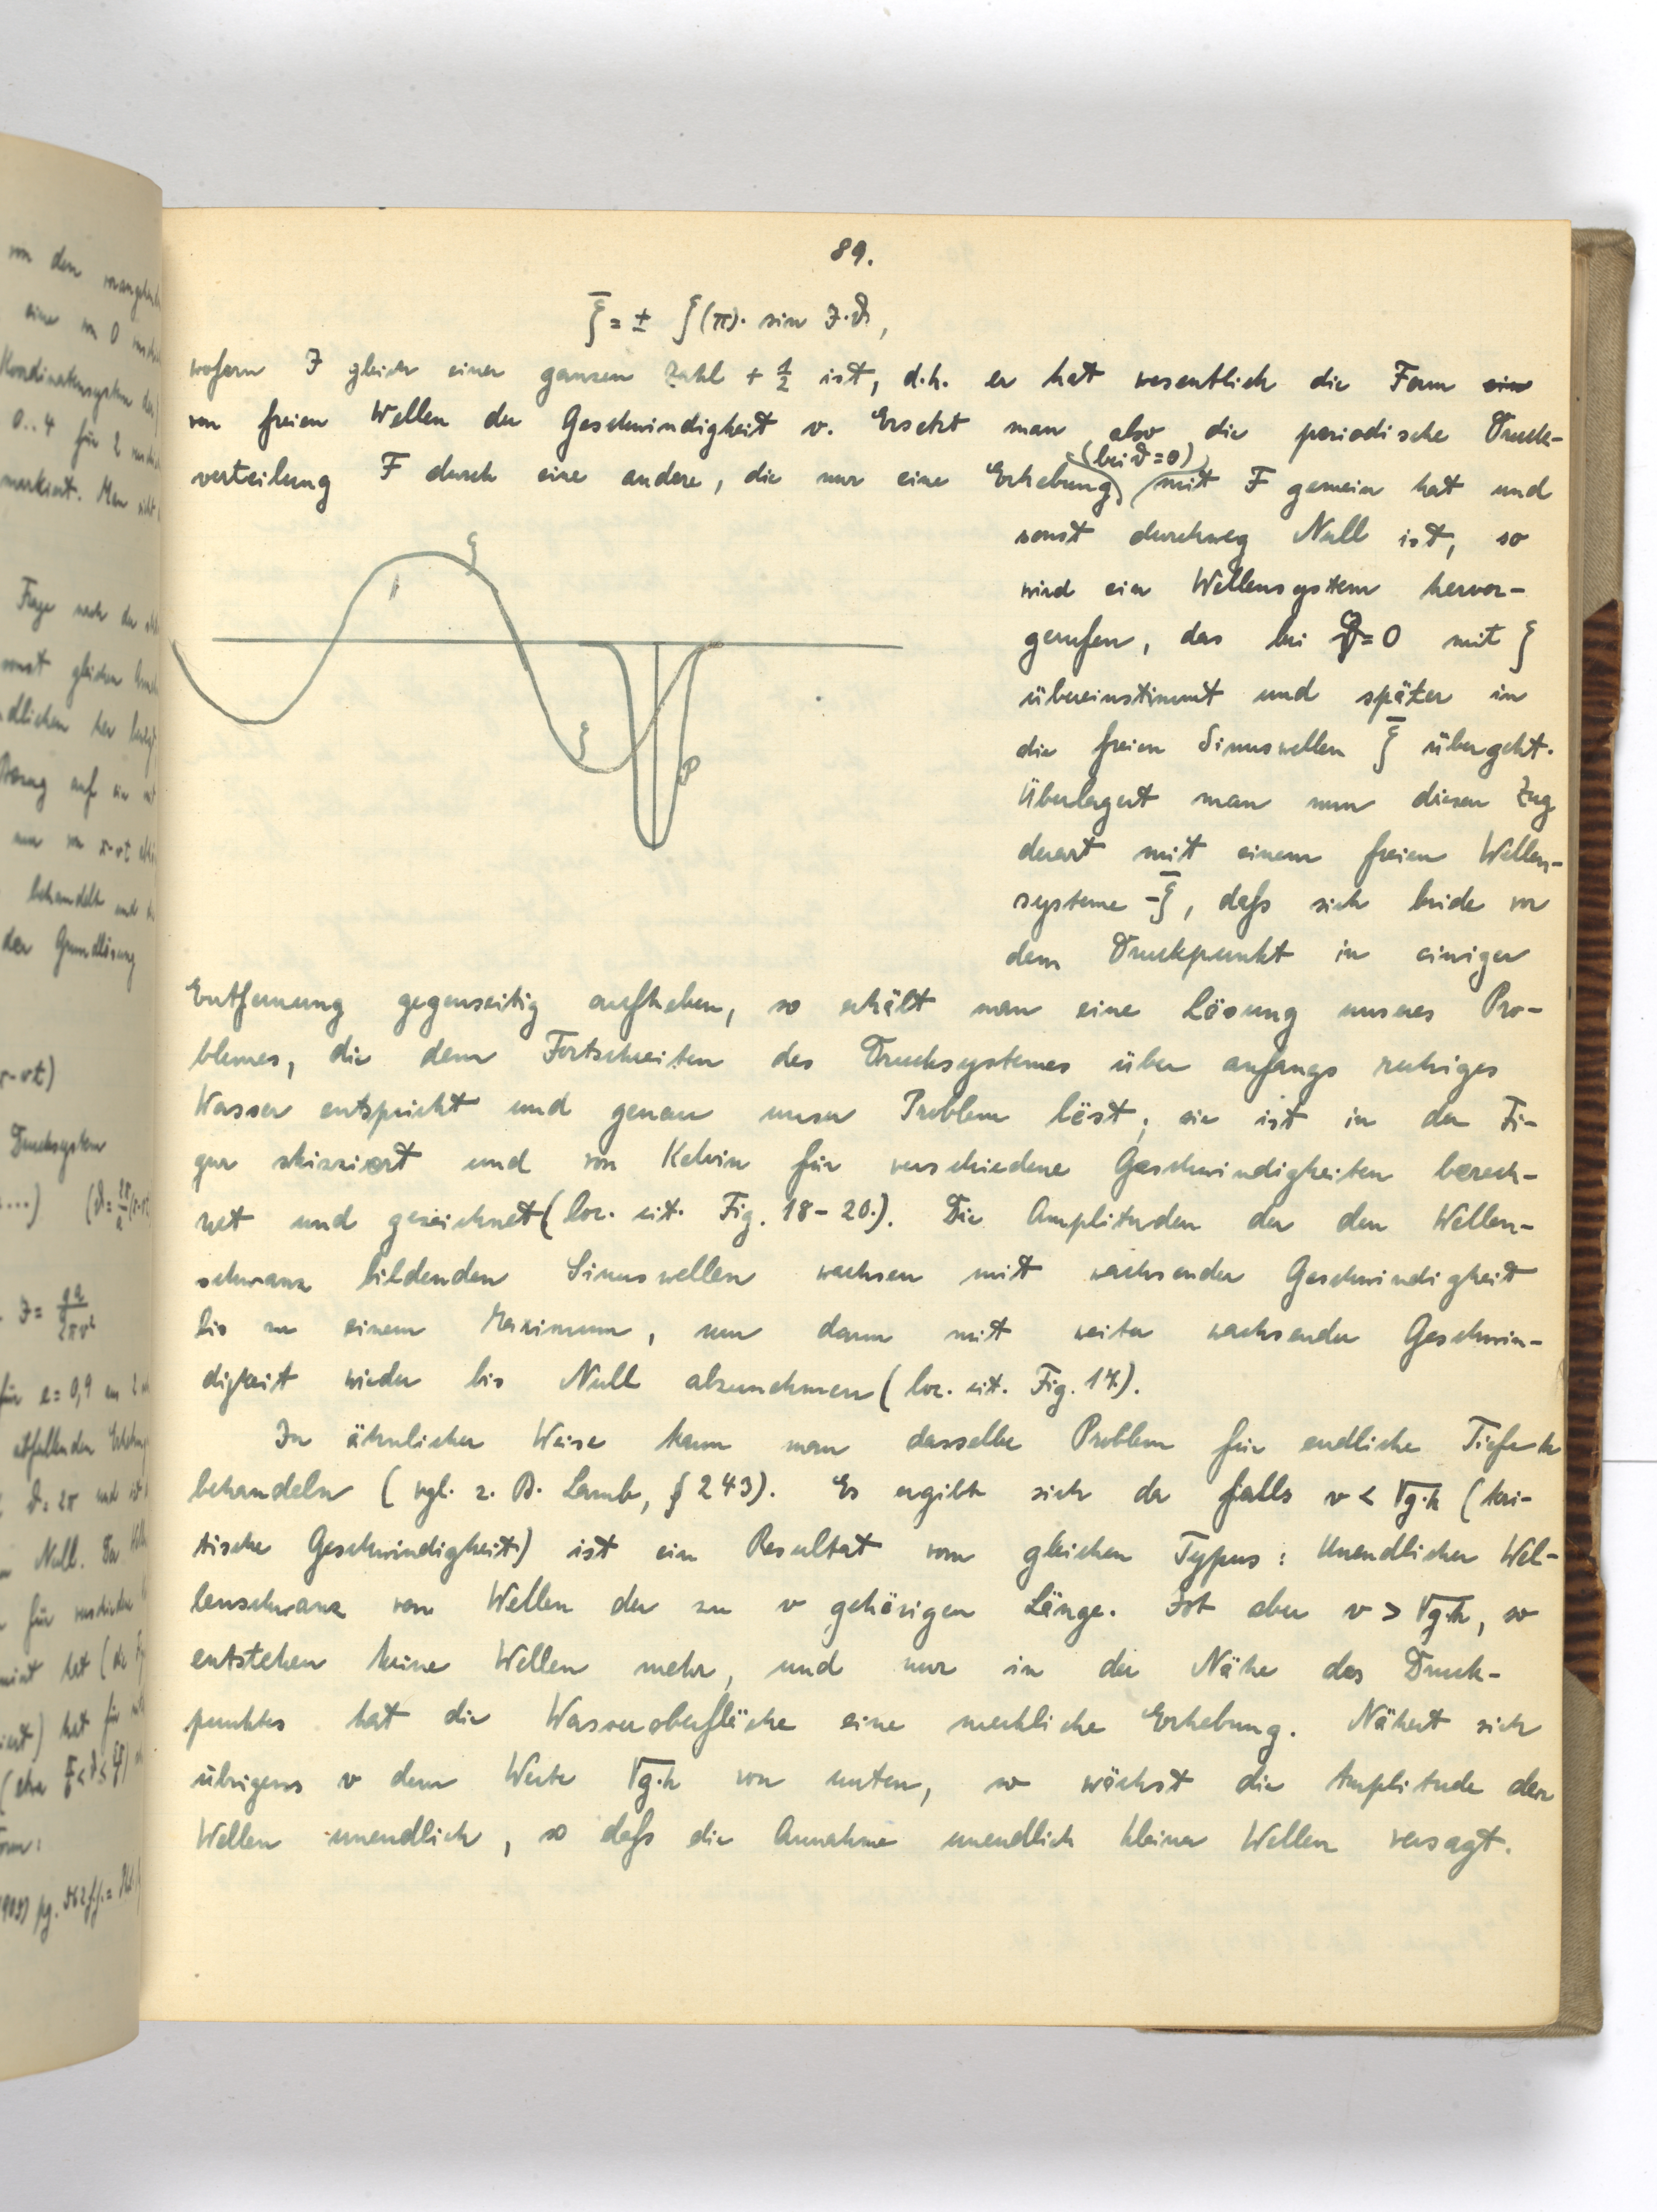 89.
ξ̄ = ± ξ(π)· sin J·ϑ,
wofern J gleich einer ganzen Zahl + 1/2 ist, d.h. er hat wesentlich die Form
von freien Wellen der Geschwindigkeit v. Ersetzt man also die periodische Druck-
verteilung F durch eine andere, die nur eine Erhebung (bei ϑ=0) mit F gemein hat und
sonst durchweg Null ist, so
wird ein Wellensystem hervor-
gerufen, das bei ϑ=0 mit ξ
übereinstimmt und später in
die freien Sinuswellen ξ̄ übergeht.
Überlagert man nun diesen Zug
derart mit einem freien Wellen-
systeme -ξ̄, daß sich beide vor
dem Druckpunkt in einiger
Entfernung gegenseitig aufheben, so erhält man eine Lösung unseres Pro-
blemes, die dem Fortschreiten des Drucksystemes über anfangs ruhiges
Wasser entspricht und genau unser Problem löst; sie ist in der Fi-
gur skizziert und von Kelvin für verschiedene Geschwindigkeiten berech-
net und gezeichnet (loc. cit. Fig. 18-20.). Die Amplituden der den Wellen-
schwanz bildenden Sinuswellen wachsen mit wachsender Geschwindigkeit
bis zu einem Maximum, um dann mit weiter wachsender Geschwin-
digkeit wieder bis Null abzunehmen (loc. cit. Fig. 17.).
In ähnlicher Weise kann man dasselbe Problem für endliche Tiefe h
behandeln (vgl. z. B. Lamb, § 243). Es ergibt sich da falls v < √g·h (kri-
tische Geschwindigkeit) ist ein Resultat vom gleichen Typus: Unendlicher Wel-
lenschwanz von Wellen der zu v gehörigen Länge. Ist aber v > √g·h, so
entstehen keine Wellen mehr, und nur in der Nähe des Druck-
punktes hat die Wasseroberfläche eine merkliche Erhebung. Nähert sich
übrigens v dem Werte √g·h von unten, so wächst die Amplitude der
Wellen unendlich, so daß die Annahme unendlich kleiner Wellen versagt.
ξ
ξ
P